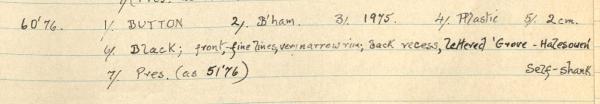 60'76. 1/. BUTTON 2/. B'ham. 3/. 1975. 4/. Plastic 5/. 2cm.
6/. Black; front, fine lines, very narrow rim; back recess, lettered 'Grove - Halesowen
Self-shank
7/. Pres. (as 51'76)